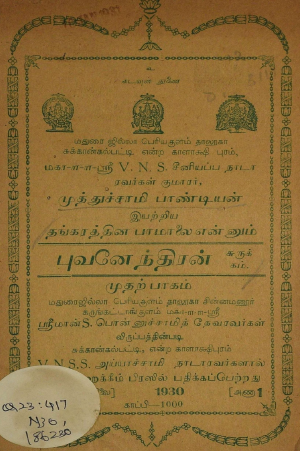 உ
கடவுள் துணை
மதுரை ஜில்லா பெரியகுளம் தாலூகா
சுக்காங்கல்பட்டி என்ற காளாக்ஷி புரம்,
மகா-௱-௱-ஸ்ரீ V. N. S. சீனியப்ப நாடா
ரவர்கள் குமாரர்,
முத்துச்சாமி பாண்டியன்
இயற்றிய
தங்கரத்தின பாமாலை என்னும்
புவனேந்திரன் சுருக்
கம்.
முதற்பாகம்
மதுரைஜில்லா பெரியகுளம் தாலூகா சின்னமனூர்
மகா-௱-௱-ஸ்ரீ
ஸ்ரீமான் S. பொன்னுச்சாமித் தேவரவர்கள்
விருப்பத்தின்படி
சுக்காங்கல்பட்டி, என்ற காளாக்ஷிபுரம்
V. N. S. S. அப்பாச்சாமி நாடாரவர்களால்
பிரஸில் பதிக்கப்பெற்றது
1930 [அணா 1
காப்பி-1000
Q23:417
N30,
186280